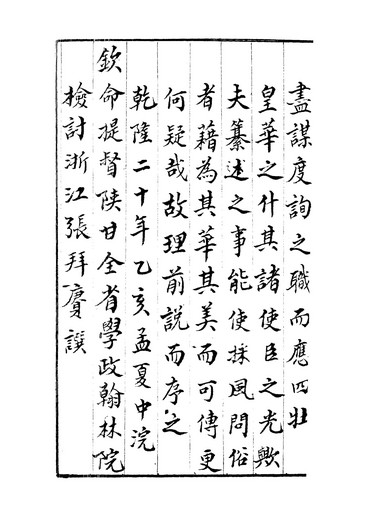 盡謀度詢之職而應四牡
皇華之什其諸使臣之光歟
夫纂述之事能使採風問俗
者藉為其華其美而可傳更
何疑哉故理前說而序之
乾隆二十年乙亥孟夏中浣
欽命提督陝甘全省學政翰林院
檢討浙江張拜賡譔